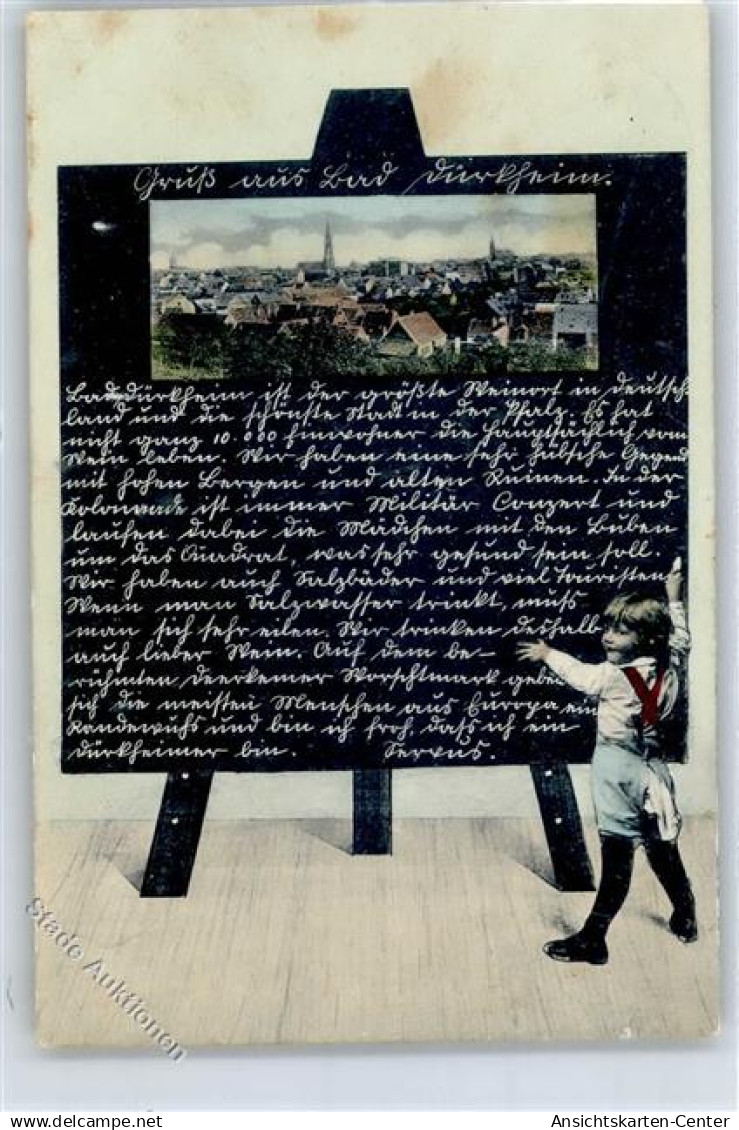 Gruß aus Bad Dürkheim.
Bad-Dürkheim ist der größte Weinort in Deutsch-
land und die schönste Stadt in der Pfalz. Es hat
nicht ganz 10.000 Einwohner die hauptsächlich vom
Wein leben. Wir haben eine sehr hübsche Gegend
mit hohen Bergen und alten Ruinen. In der
Kolonnade ist immer Militär Conzert und
laufen dabei die Mädchen mit den Buben
um das Quadrat, was sehr gesund sein soll.
Wir haben auch Salzbäder und viel Touristen.
Wenn man Salzwasser trinkt, muß
man sich sehr eilen. Wir trinken deshalb
auch lieber Wein. Auf dem be-
rühmten Deerkemer Worschtmark geben
sich die meisten Menschen aus Europa ein
Randewuhs und bin ich froh, dass ich ein
Dürkheimer bin. Servus.
Stade Auktionen
www.delcampe.net
Ansichtskarten-Center